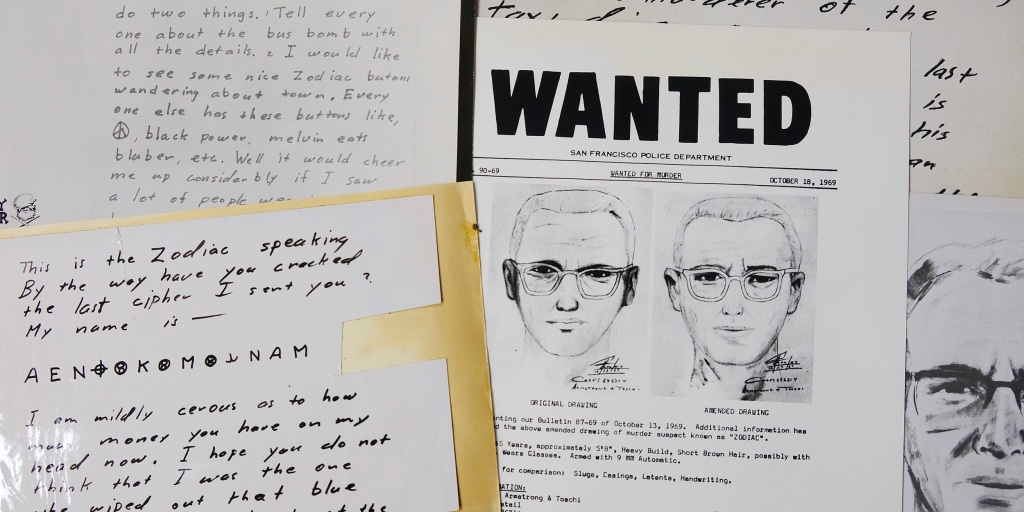 do two things. Tell every
one about the bus bomb with
all the details. 2 I would like
to see some nice Zodiac butons
wandering about town. Every
one else has these buttons like,
☮, black power, melvin eats
bluber, etc. Well it would cheer
me up considerbly if I saw
a lot of people
of the
last
is
his
This is the Zodiac speaking
By the way have you cracked
the last cipher I sent you ?
My name is —
A E N ⌖ ⊗ K ⊗ M ⊗ ⅃ N A M
I am mildly cerous as to how
much money you have on my
head now. I hope you do not
think that I was the one
who wiped out that blue
WANTED
SAN FRANCISCO POLICE DEPARTMENT
90-69 WANTED FOR MURDER OCTOBER 18, 1969
ORIGINAL DRAWING AMENDED DRAWING
our Bulletin 87-69 of October 13, 1969. Additional information has
the above amended drawing of murder suspect known as "ZODIAC".
Years, approximately 5'8", Heavy Build, Short Brown Hair, possibly with
Wears Glasses. Armed with 9 MM Automatic.
for comparison: Slugs, Casings, Latents, Handwriting.
Armstrong & Toschi